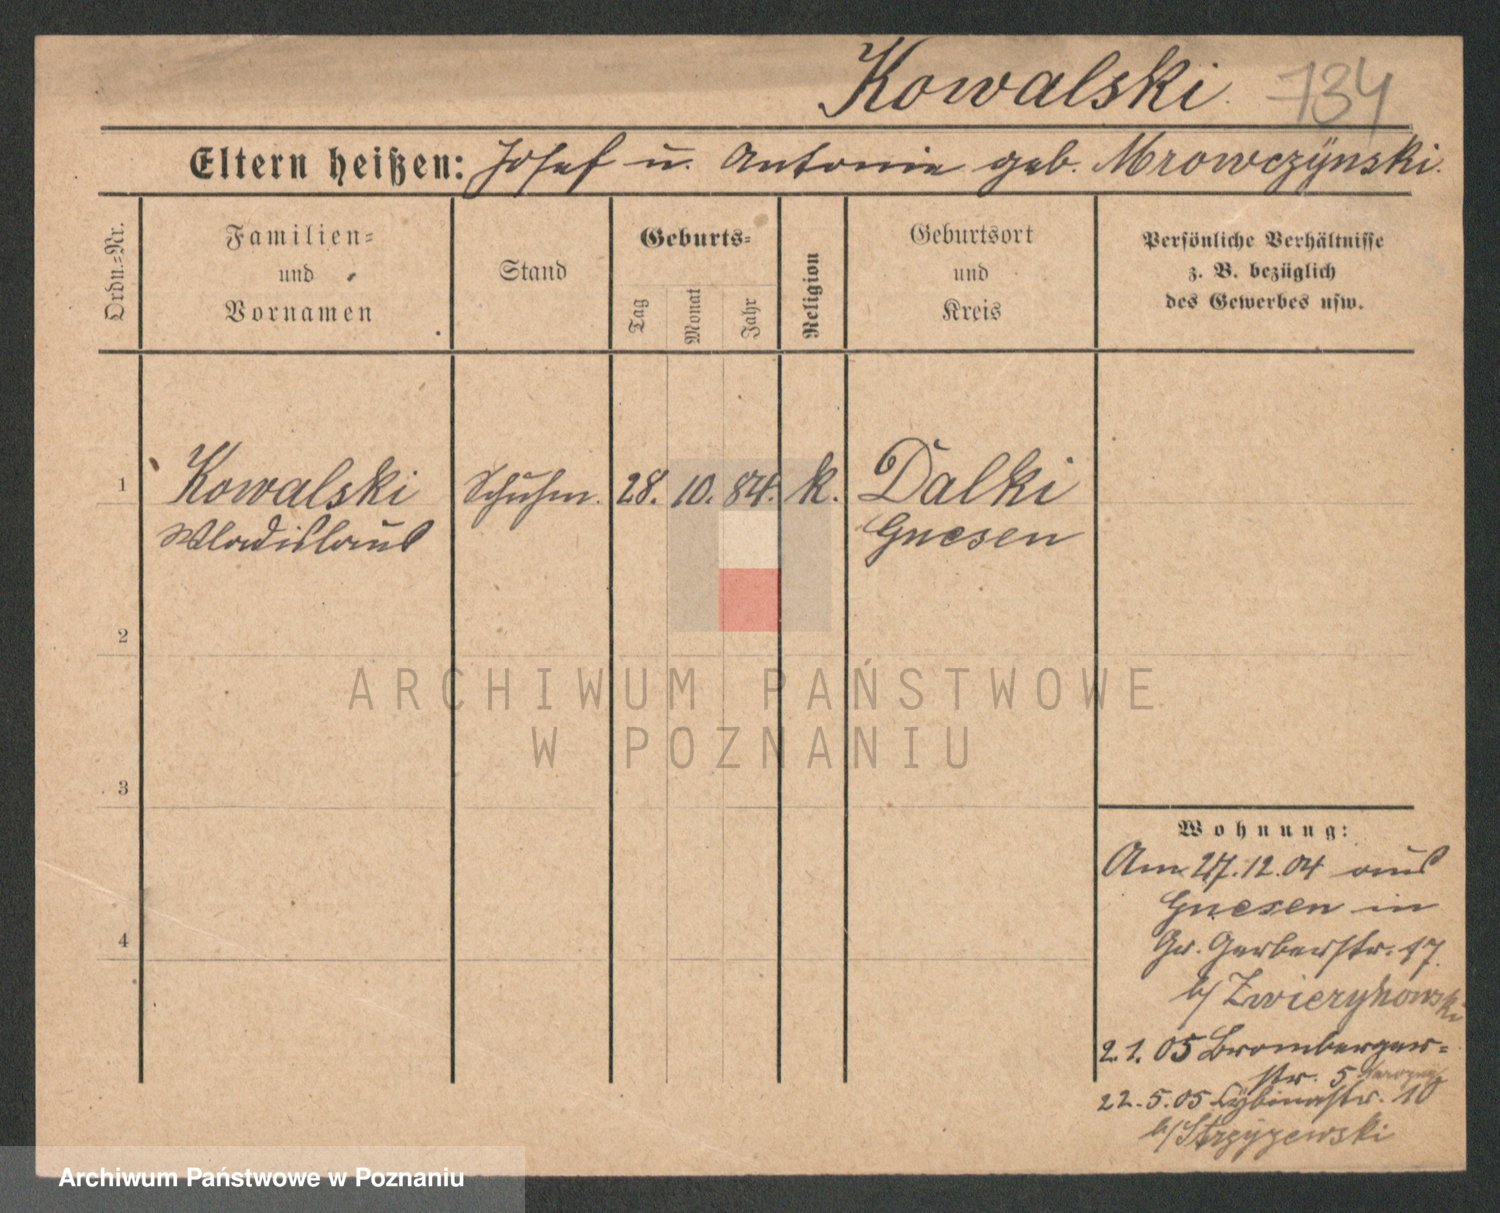 Kowalski 734
Eltern heißen: Josef u. Antonie geb. Mrowczÿnski.
Ordn.-Nr.
Familien-
und
Vornamen
Stand
Geburts-
Tag
Monat
Jahr
Religion
Geburtsort
und
Kreis
Persönliche Verhältnisse
z. B. bezüglich
des Gewerbes usw.
1 Kowalski Schuhm. 28. 10. 84. k. Dalki
Wladislaus Gnesen
2
ARCHIWUM PAŃSTWOWE
W POZNANIU
3
Wohnung:
Am 27.12.04 aus
Gnesen in
4
Gr. Gerberstr. 17.
b/ Zwierzykowski
2.1.05 Bromberger-
str. 5
22.5.05 Cÿbinastr. 10
b/ Strzyzewski
Archiwum Państwowe w Poznaniu